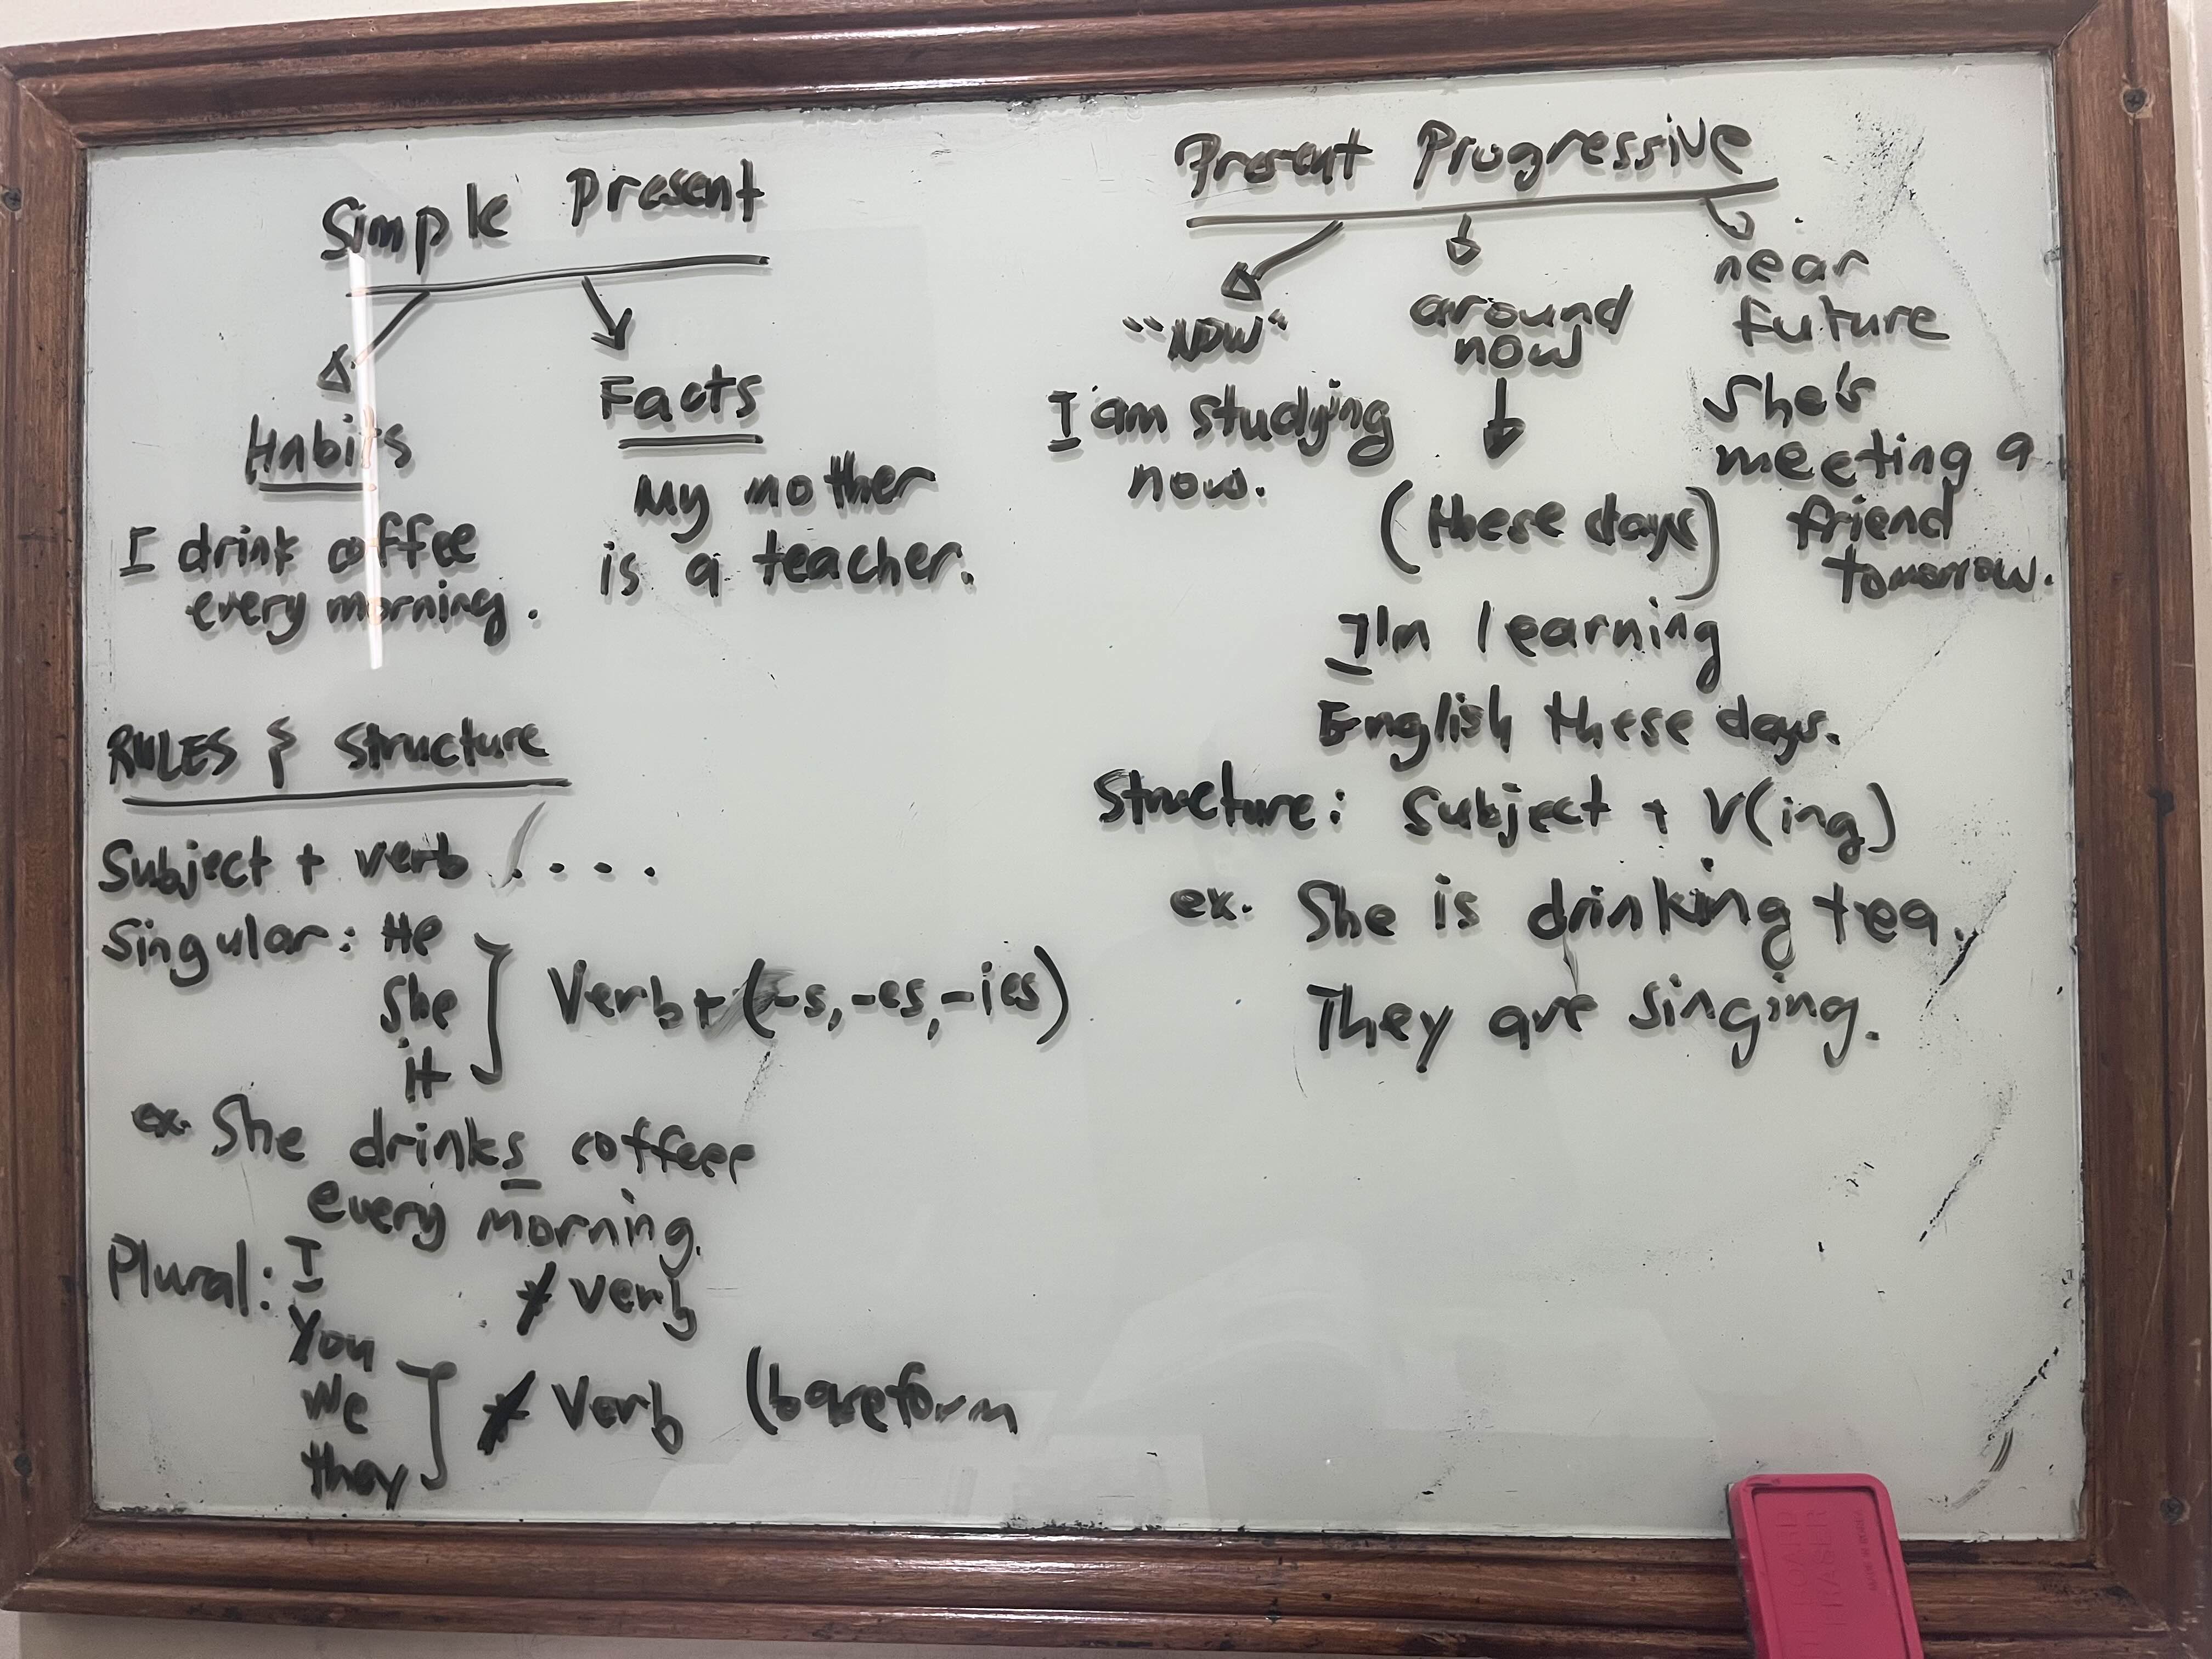 Simple present
Habits
I drink coffee
every morning.
Facts
My mother
is a teacher.
RULES & Structure
Subject + verb ....
Singular: He
She
it
Verb + (-s, -es, -ies)
ex. She drinks coffeee
every morning.
Plural: I
You
We
they
verb
verb (bareform
Present Progressive
"NOW"
I am studying
now.
around
now
(these days)
I'm learning
English these days.
near
future
She's
meeting a
friend
tomorrow.
Structure: Subject + V(ing)
ex. She is drinking tea.
They are singing.